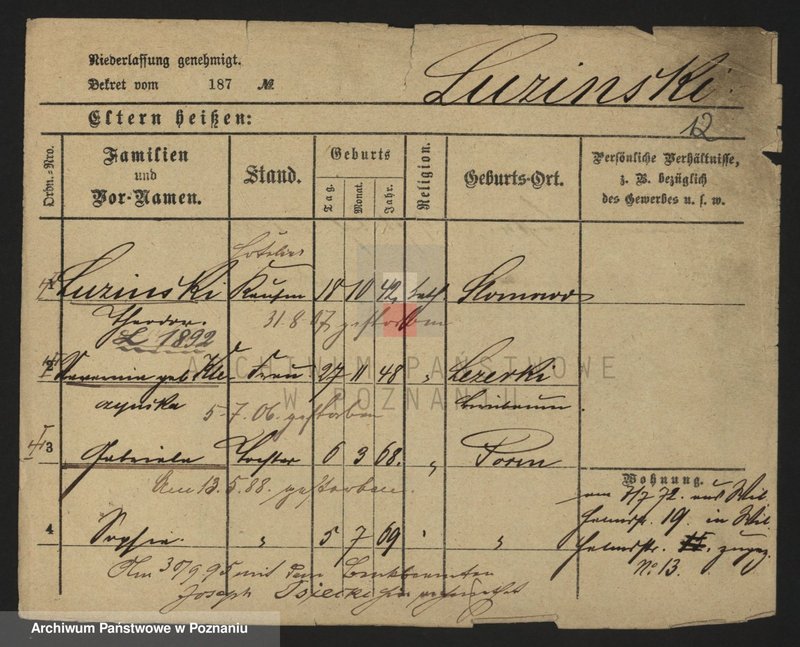 Niederlassung genehmigt.
Dekret vom 187 №
Luzinski
12
Eltern heißen:
Ordn.-Nro.
Familien
und
Vor-Namen.
Stand.
Geburts
Tag.
Monat.
Jahr.
Religion.
Geburts-Ort.
Persönliche Verhältnisse,
z. B. bezüglich
des Gewerbes u. s. w.
Hotelier
Luzinski Kaufm 18 10 42 kath. Slomowo
Theodor. 31-8-07 gestorben
L 1892
ARCHIWUM PAŃSTWOWE
W POZNANIU
2 geb. Kle Frau 27 11 48 "
czynska 5-7.06. gestorben
3 Gabriele Tochter 6 3 68. "
Am 13.5.88. gestorben.
Wohnung.
am 7/7 72. aus Wil
helmstr. 19. in Wil
4 Sophie. " 5 7 69 " "
helmstr. zugez.
No 13.
Am 30/9 95 mit dem Bankbeamten
Joseph
Archiwum Państwowe w Poznaniu